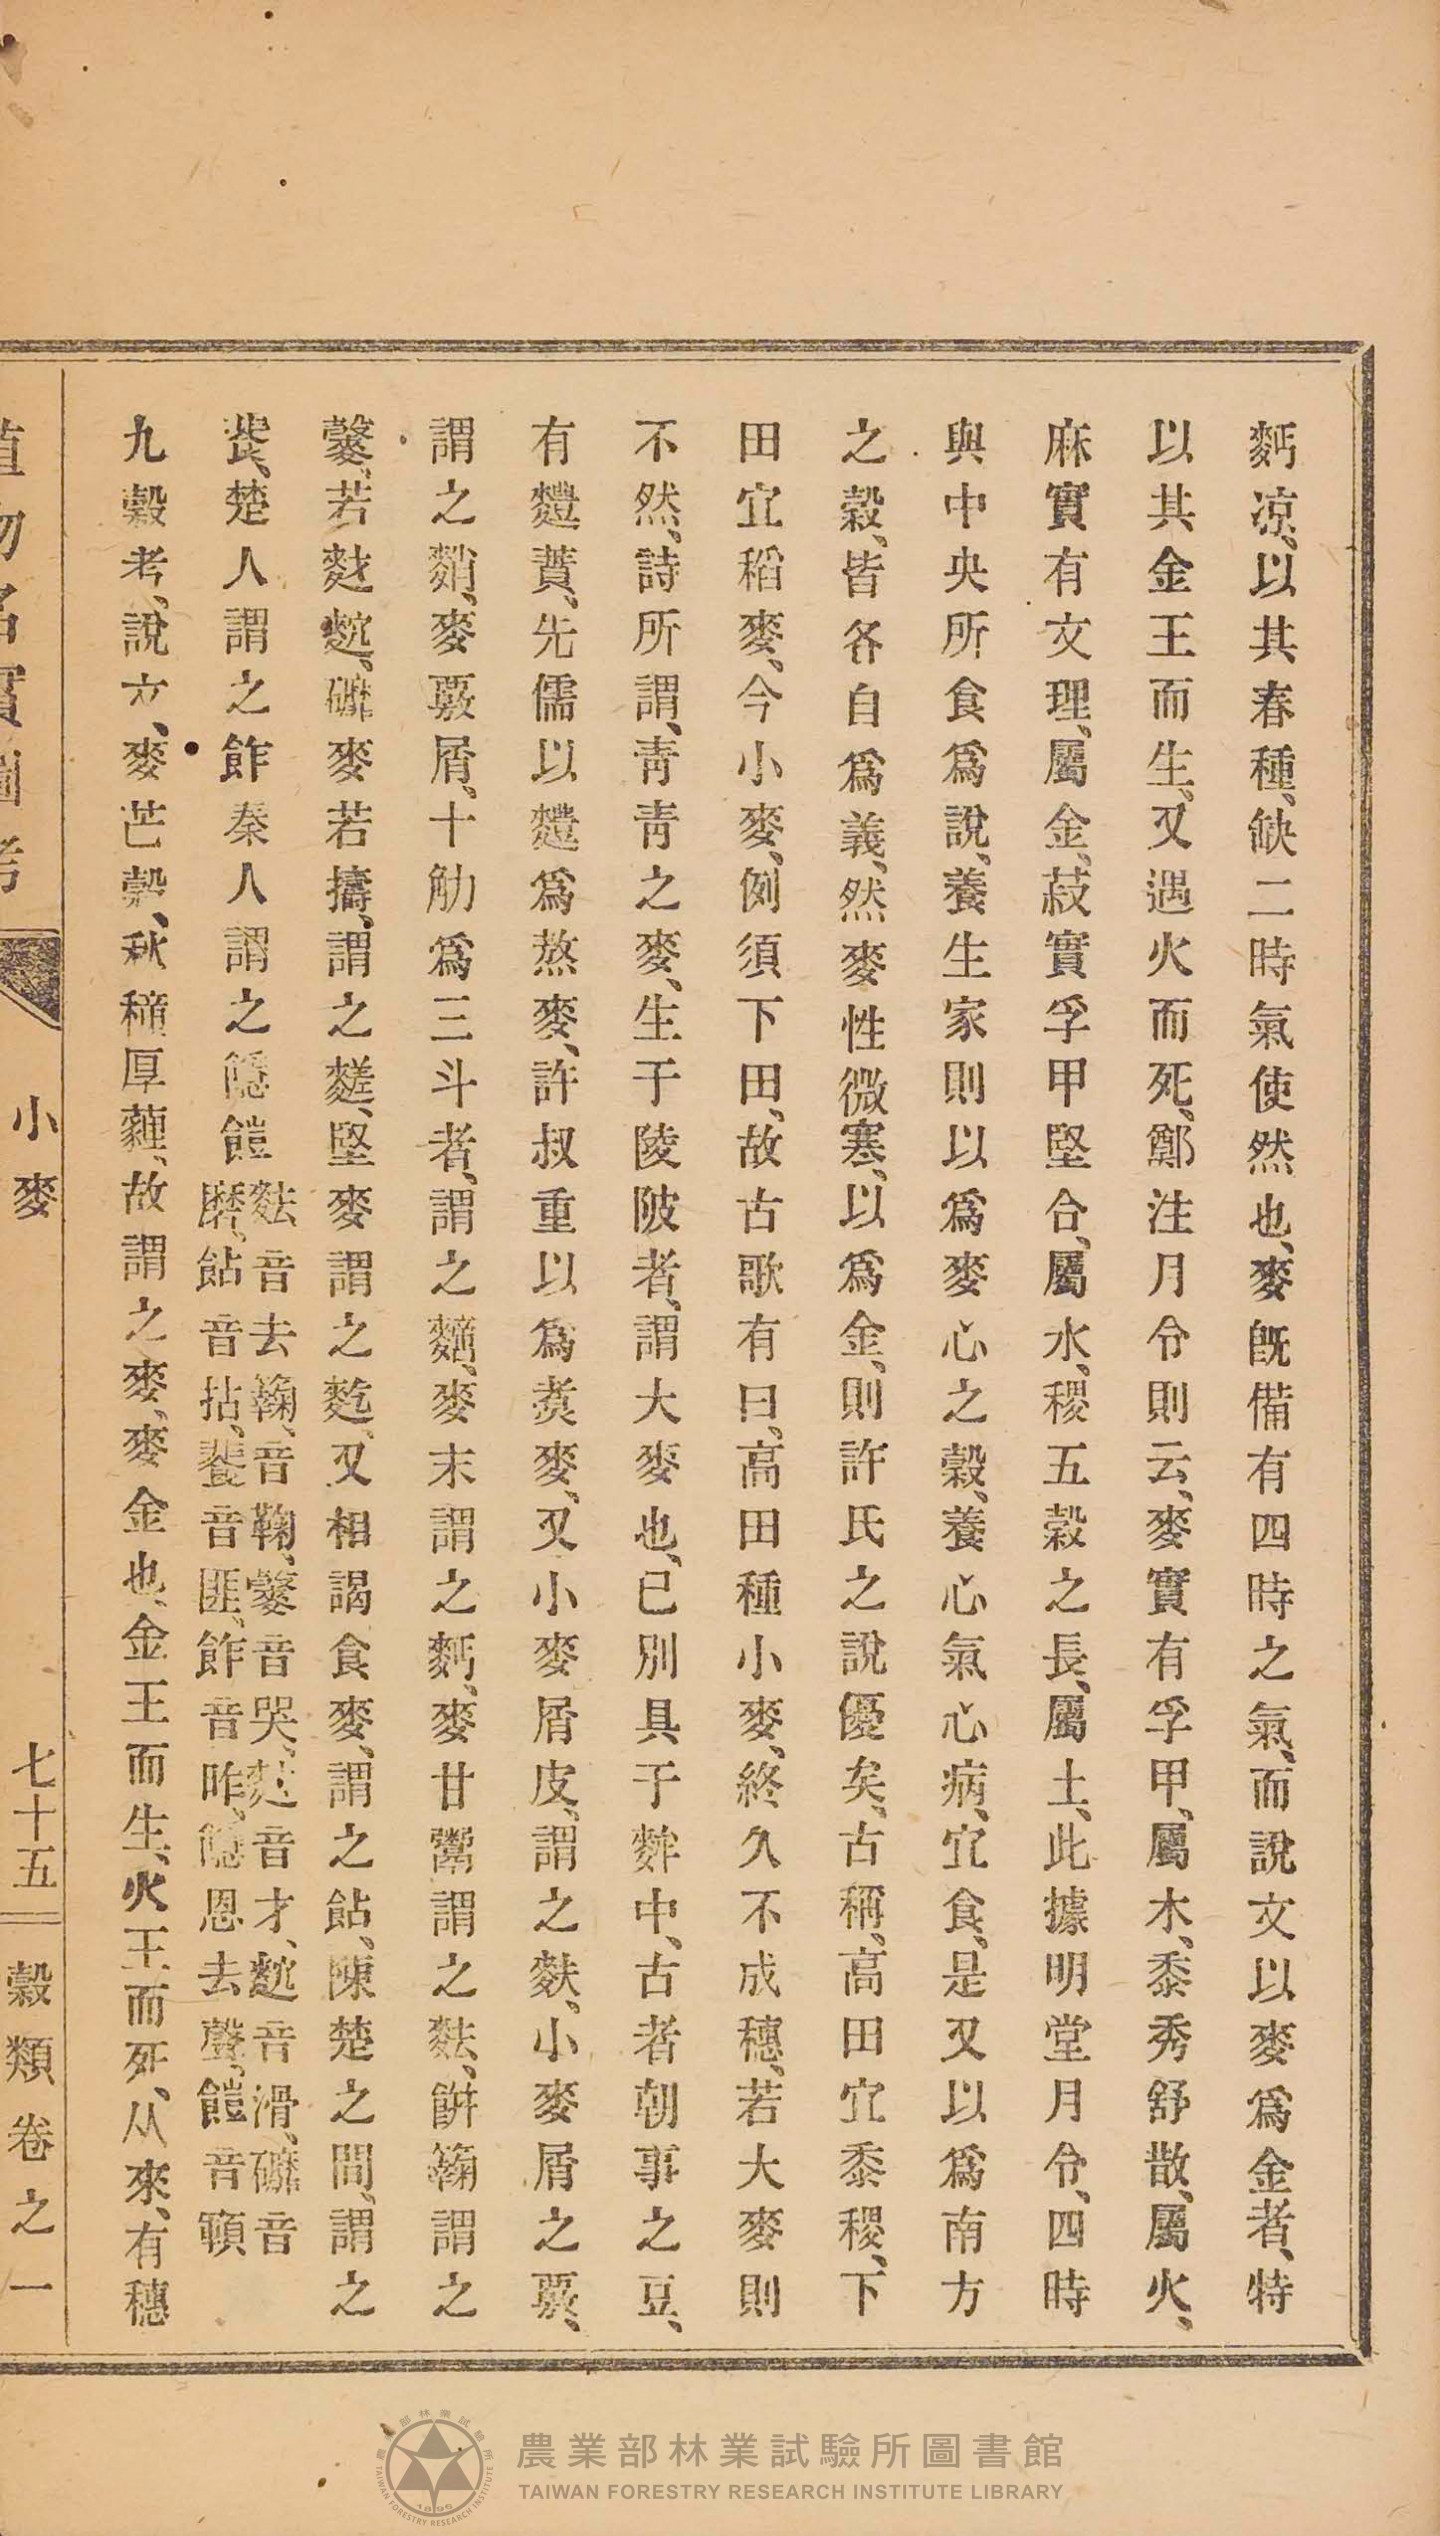 麪凉、以其春種、缺二時氣使然也、麥旣備有四時之氣、而說文以麥爲金者、特
以其金王而生、又遇火而死、鄭注月令則云、麥實有孚甲、屬木、黍秀舒散、屬火、
麻實有文理、屬金、菽實孚甲堅合、屬水、稷五穀之長、屬土、此據明堂月令、四時
與中央所食爲說、養生家則以爲麥心之穀、養心氣心病、宜食、是又以爲南方
之穀、皆各自爲義、然麥性微寒、以爲金、則許氏之說優矣、古稱、高田宜黍稷、下
田宜稻麥、今小麥、例須下田、故古歌有曰、高田種小麥、終久不成穗、若大麥則
不然、詩所謂、靑靑之麥、生于陵陂者、謂大麥也、已別具于䴭中、古者朝事之豆、
有麷蕡、先儒以麷爲熬麥、許叔重以爲煑麥、又小麥屑皮、謂之麩、小麥屑之覈、
謂之䴰、麥覈屑、十觔爲三斗者、謂之䵂、麥末謂之麪、麥甘鬻謂之麮、餠䴷謂之
䵅、若䴭䴬、䃺麥若擣、謂之䴾、堅麥謂之麧、又相謁食麥、謂之䬯、陳楚之間、謂之
餥、楚人謂之飵秦人謂之䭡䭓麮音去䴷、音鞠、䵅音哭、䴭音才、䴬音滑、䃺音
磨、䬯音拈、餥音匪、飵音昨、䭡恩去聲、䭓音頓
九穀考、說文、麥芒榖、秋種厚薶、故謂之麥、麥金也、金王而生、火王而死、从來、有穗
植物名實圖考
小麥
七十五
穀類卷之一
農業部林業試驗所圖書館
TAIWAN FORESTRY RESEARCH INSTITUTE LIBRARY
TAIWAN FORESTRY RESEARCH INSTITUTE
部林業試驗所
1896